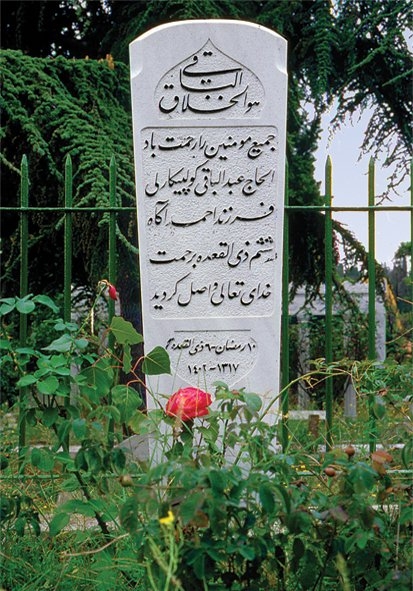 هو الخلاق الباقی
جمیع مومنین را رحمت باد
الحاج عبدالباقی گولپینارلی
فرزند احمد آگاه
ششم ذی القعده برحمت
خدای تعالی واصل گردید
۱۰ رمضان - ۶ ذی القعده
۱۳۱۷ - ۱۴۰۲